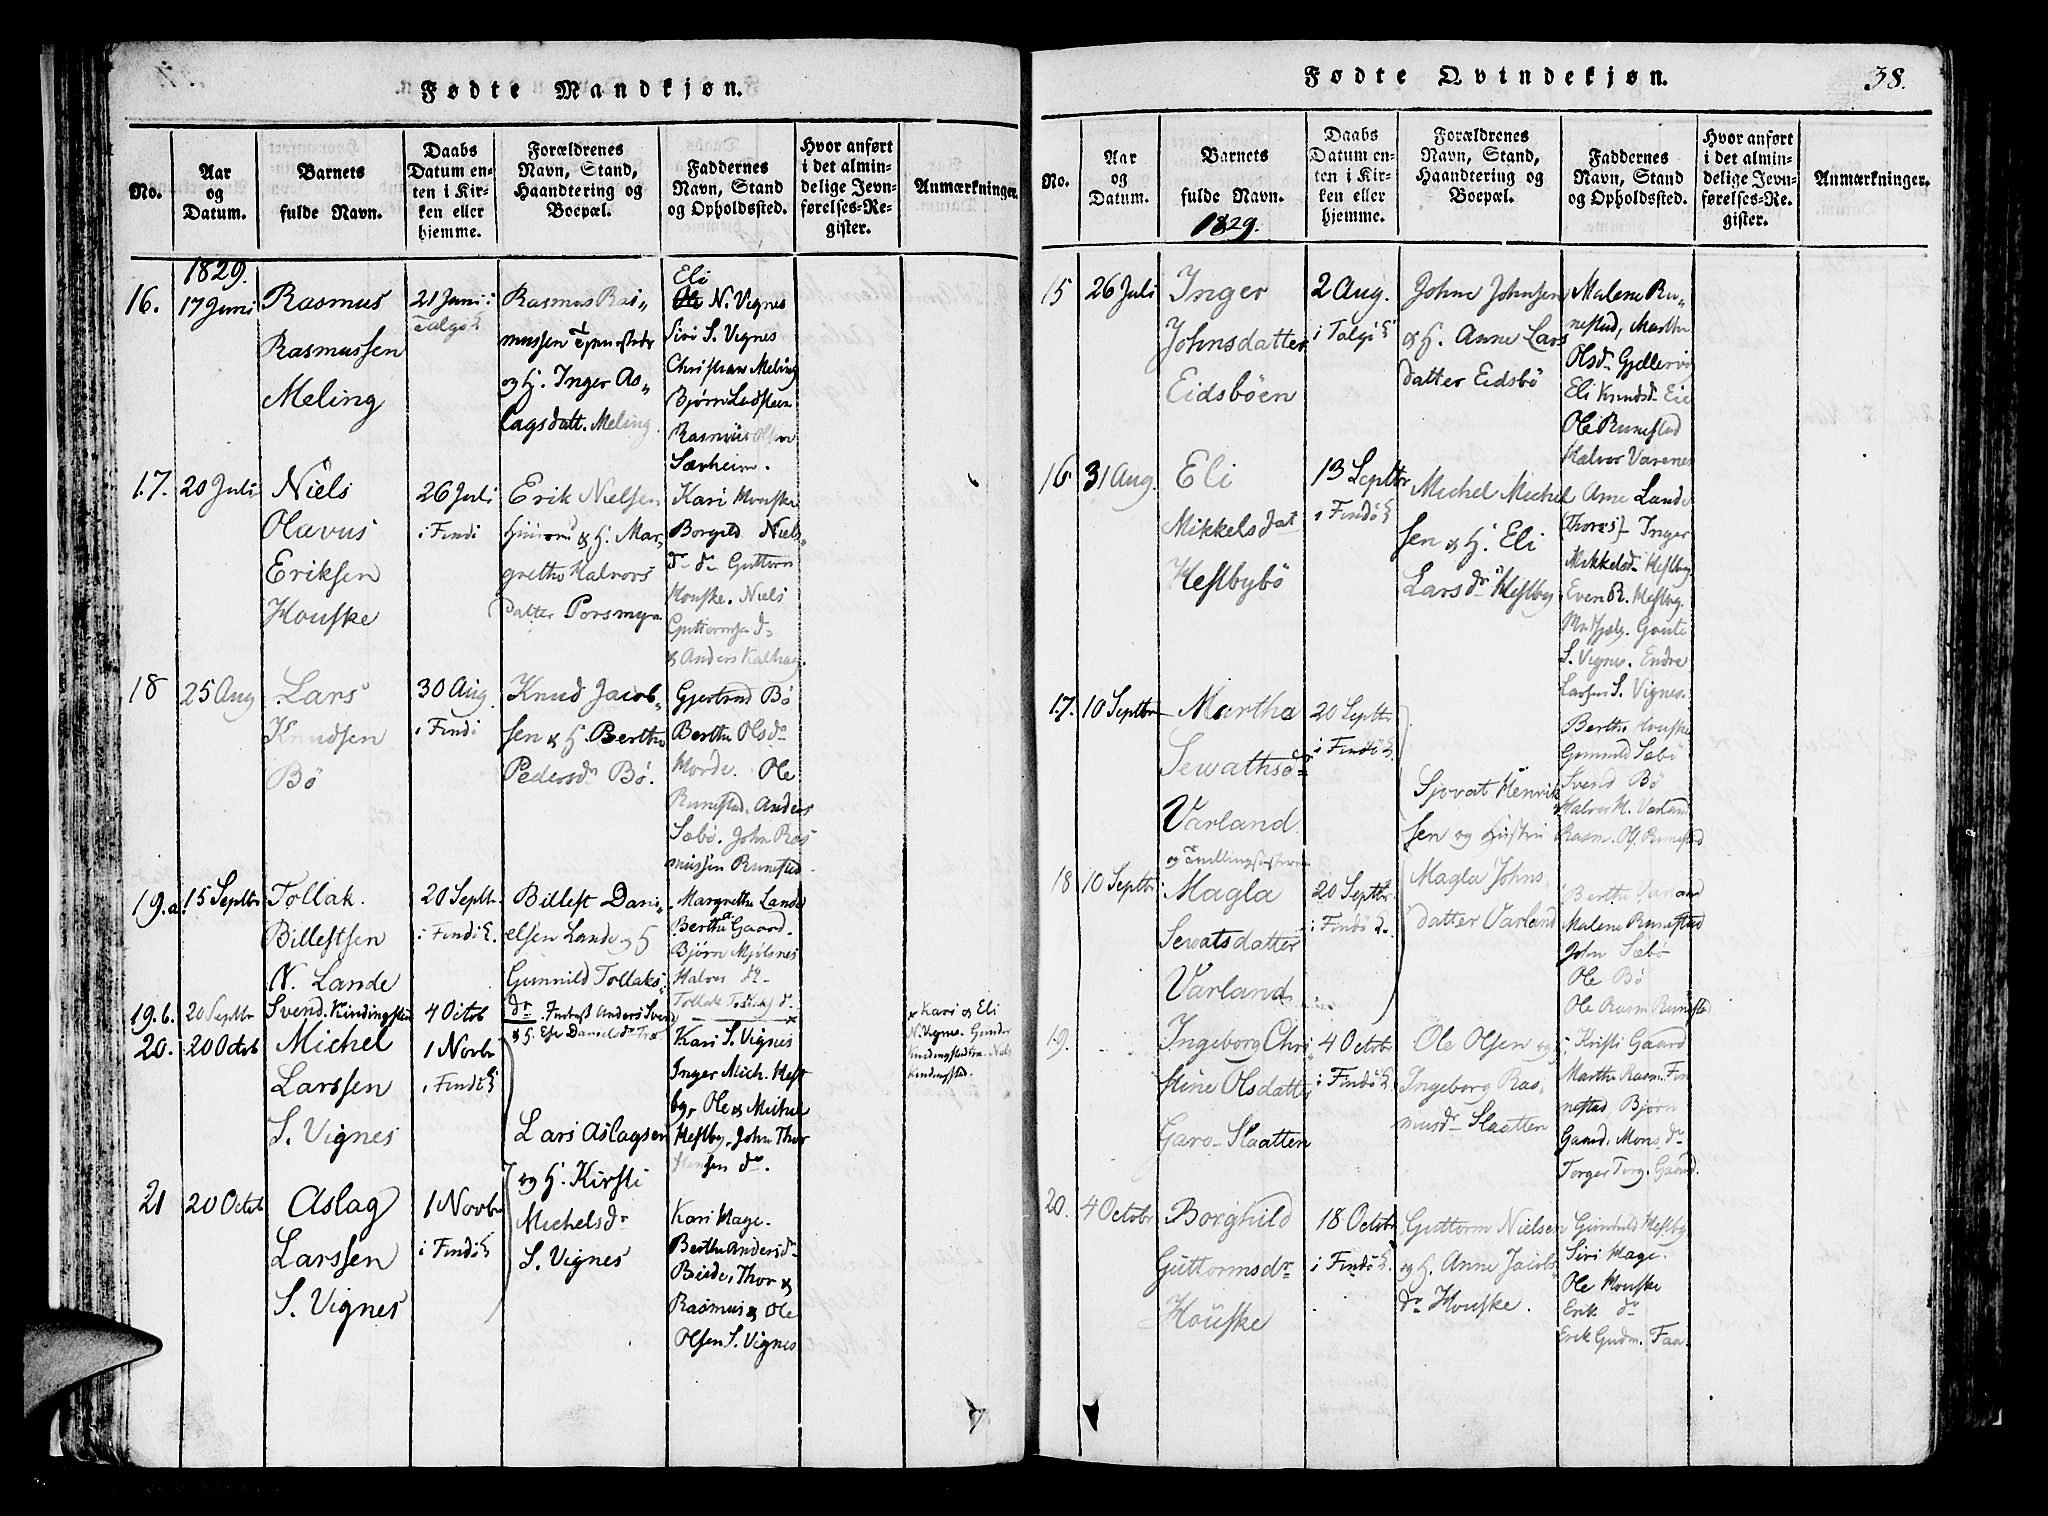 Fødte Mandkjøn.
No.
Aar
og
Datum.
Barnets
fulde Navn.
Daabs
Datum en-
ten i Kir-
ken eller
hjemme.
Forældrenes
Navn, Stand,
Haandtering og
Boepæl.
Faddernes
Navn, Stand
og Opholdssted.
Hvor anført
i det almin-
delige Jevn-
førelses-Re-
gister.
Anmærkninger.
1829.
16.
17 Juni
Rasmus
Rasmussen
Meling
21 Juni
Talgö K
Rasmus Ras„
mussen
og H. Inger As„
lagsdatt. Meling.
Eli
N. Vignes
Siri S. Vignes
Christian Meling
Bjørn Ladsteen
Rasmus Olsen
Særheim.
17.
20 Juli
Niels
Olavus
Eriksen
Houske
26 Juli
i Findö
Erik Nielsen
& H. Mar„
grethe Halvors
datter Porsmyr
Kari Houske
Borgild Niels„
dr do Guttorm
Houske. Niels
Guttormsen do
& Anders Kalhag.
18
25 Aug
Lars
Knudsen
Bö
30 Aug
i Findö
Knud Jacob„
sen & H. Berthe
Pedersdr Bö.
Gjertrud Bö
Berthe Olsdr
Horde. Ole
Runestad. Anders
Sæbö. John Ras
mussen Runestad.
19.a.
15 Septbr
Tollak
Billestsen
N. Lande
20 Septbr
i Findö K.
Billest Dani„
elsen Lande og H
Gunnild Tollaks„
dr
Margrethe Lande
Berthe Gaard.
Bjørn Mjølsnes
Halvor do
Tollak do
19.b.
20 Septbr
Svend Kindingstad
4 Octob
Anders Svend
& H. Danielsdr
Kari & Eli
N. Vignes. Gunder
Kindingstad Niels
Kindingstad.
20.
20 Octob
Michel
Larssen
S. Vignes
1 Novbr
i Findö K
Lars Aslagsen
og H. Kirsti
Michelsdr
S. Vignes
Kari S. Vignes
Inger Mich. Hest
by, Ole & Michel
Hestby. John Thor
stensen do.
21
20 Octob
Aslag
Larssen
S. Vignes
1 Novbr
i Findö K
Kari Hage.
Berthe Andersdr
Thor &
Rasmus & Ole
Olsen S. Vignes
Fødte Qvindekjøn.
38.
No.
Aar
og
Datum.
Barnets
fulde Navn.
1829.
Daabs
Datum en-
ten i Kir-
ken eller
hjemme.
Forældrenes
Navn, Stand,
Haandtering og
Boepæl.
Faddernes
Navn, Stand
og Opholdssted.
Hvor anført
i det almin-
delige Jevn-
førelses-Re-
gister.
Anmærkninger.
15
26 Juli
Inger
Johnsdatter
Eidsböen
2 Aug.
i Talgö K
Johne Johnsen
& H. Anne Lars
datter Eidsbö
Malene Ru„
nestad, Marthe
Olsdr Gjellervig
Eli Knudsdr Eie
Ole Runestad
Halvor Varenes
16
31 Aug.
Eli
Mikkelsdat
Hestbybö
13 Septbr
i Findö K
Michel Michel
sen & H. Eli
Larsdr Hestby
Ane Lande
(Thores) Inger
Mikkelsdr Hestby
Even R. Hestby.
Gaute
S. Vignes. Endre
Larsen S. Vignes.
17.
10 Septbr
Martha
Sewathsdr
Varland
20 Septbr
i Findö K
Sjovat Henrik
sen og Hustru
Magla Johns„
datter Varland
Berthe Houske
Gunnild Sæbö
Svend Bö
Halvor H. Varland
Rasm. Ols. Runestad
18
10 Septbr
og Tvillingsøsteren
Magla
Sewatsdatter
Varland
20 Septbr
i Findö K.
Berthe Varland
Malene Runestad
John Sæbö
Ole Bö
Ole Rasm Runestad
19.
Ingeborg Chri„
stine Olsdatter
Garo-Slaatten
4 Octobr
i Findö K
Ole Olsen og
Ingeborg Ras„
musdr Slaatten
Kristi Gaard
Marthe Rasm. Fin
nestad, Bjørn
Gaard, Mons do
Torger Torg. Gaard.
20.
4 Octobr
Borghild
Guttormsdr
Houske
18 Octobr
i Findö K.
Guttorm Nielsen
og H. Anne Jacobs„
dr Houske.
Gunnild Hestby
Siri Hage.
Ole Houske
Erik do
Erik Gudm. Faa